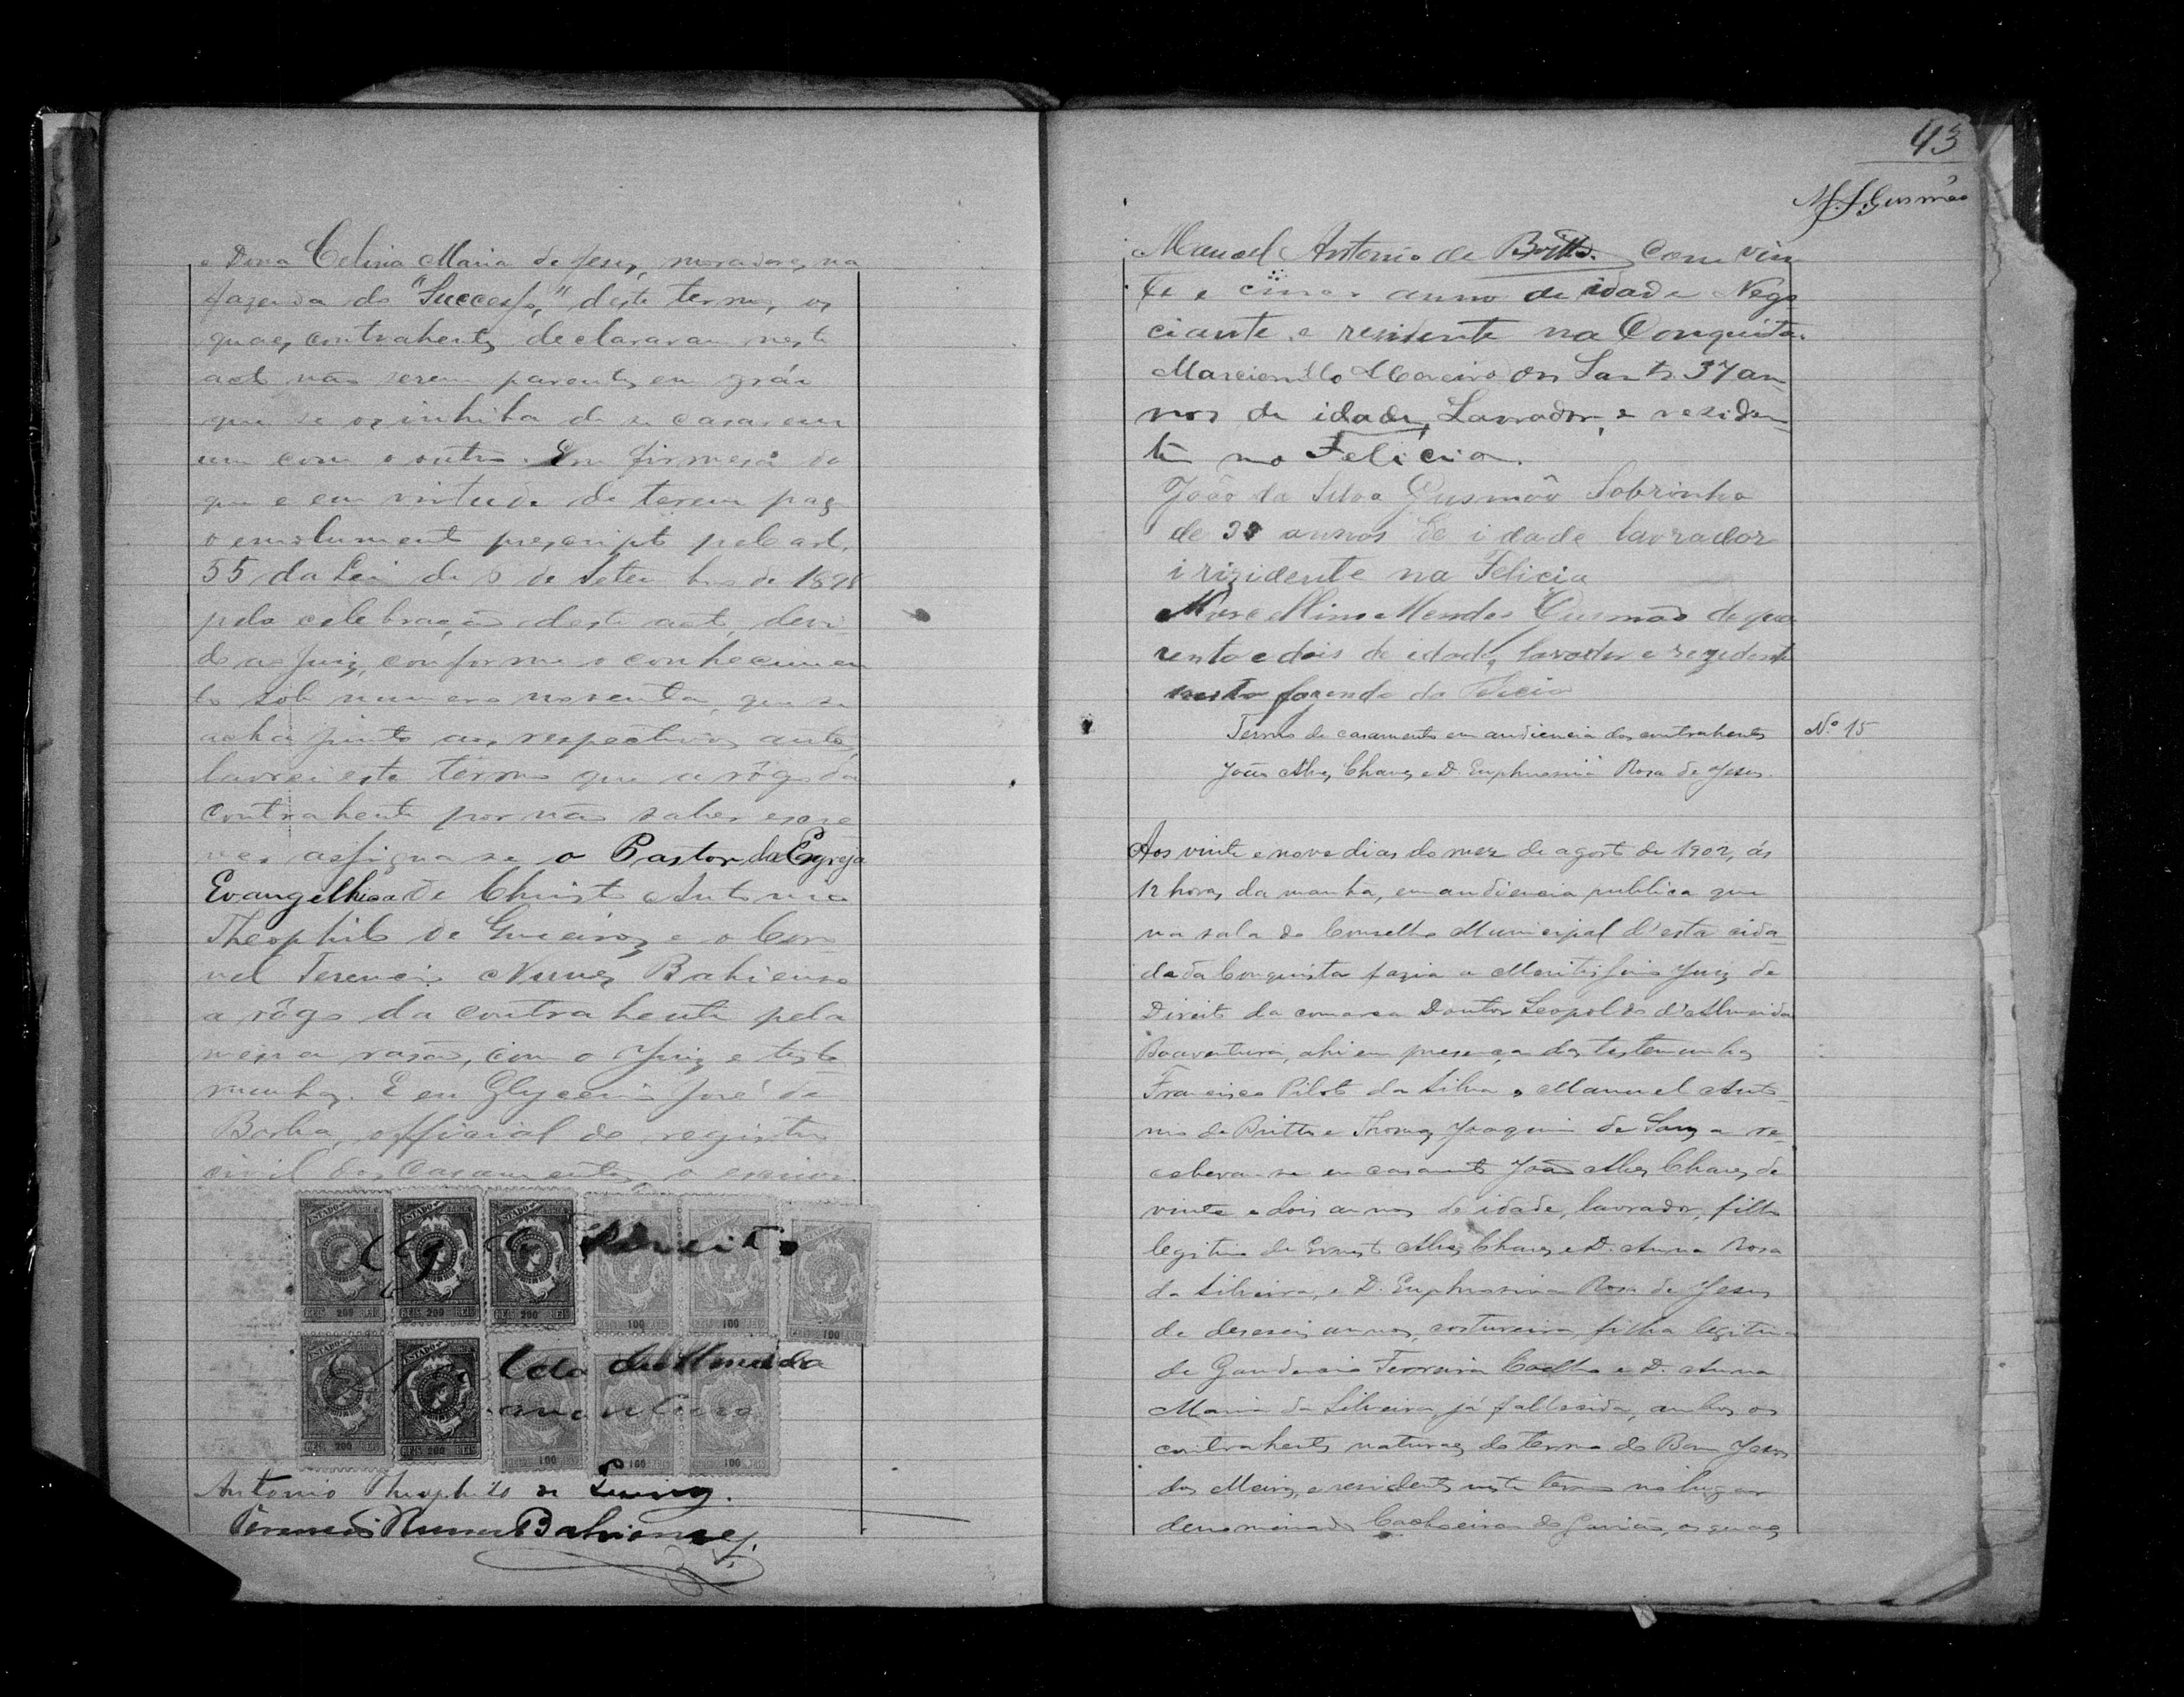 e Dona Celina Maria de Jesus, moradores na
fazenda do "Successo," deste termo, os
quaes contrahentes declararam neste
acto não serem parentes em gráu
que se os inhiba de se casarem
um com o outro. Em firmesa do
que e em virtude de terem pago
o emolumento prescripto pelo art.
55 da Lei de 5 de Setembro de 1898
pela celebração deste acto, devi-
do ao Juiz, conforme o conhecimen
to sob numero noventa, que se
acha junto aos respectivos autos,
lavrei este termo que a rôgo da
contrahente por não saber escre
ver assigna-se o Pastor da Egreja
Evangelhica de Christo Antonio
Theophilo de Queiroz e o Coro
nel Terencio Nunes Bahiense
a rôgo da contrahente pela
mesma rasão, com o Juiz e teste
munhas. E eu Glycerio José de
Borba, official do registro
civil dos Casamentos o escrevi.
ESTADO DA BAHIA
REIS 200 REIS
100
Direito
Leopoldo de Almeida
Antonio Theophilo de Queiroz.
Terencio Nunes Bahiense,
43
M. S. Gusmão
Manoel Antonio de Britto. Com vin
te e cinco anno de idade Nego
ciante e residente na Conquista.
Marcionillo Moreira dos Santos 37 an
nos de idade, Lavrador, e residen
te no Felicia.
João da Silva Gusmão Sobrinho
de 3 annos de idade lavrador
i rizidente na Felicia
Marcellino Mendes Gusmão de qua
renta e dois de idade, lavrador e rezedente
nesta fazenda da Felicia
Termo de casamento em audiencia dos contrahentes
João Alves Chaves e D. Euphrosina Rosa de Jesus.
Nº 15
Aos vinte e nove dias do mez de agosto de 1902, ás
12 horas da manhã, em audiencia publica que
na sala do Conselho Municipal d'esta cida-
de da Conquista fazia o Meritissimo Juiz de
Direito da comarca Doutor Leopoldo d'Almeida
Boaventura, ahi em presença das testemunhas
Francisco Piloto da Silva, Manuel Anto
nio de Britto e Thomaz Joaquim de Souza re-
ceberam-se em casamento João Alves Chaves, de
vinte e dois annos de idade, lavrador, filho
legitimo de Ernesto Alves Chaves e D. Anna Rosa
da Silveira, e D. Euphrosina Rosa de Jesus
de deseseis annos, costureira, filha legitima
de Gaudencio Ferreira Coelho e D. Anna
Maria da Silveira, já fallecida, ambos os
contrahentes naturaes do termo do Bom Jesus
dos Meiras, e residentes neste termo no lugar
denominado Cachoeira do Gavião, os quaes